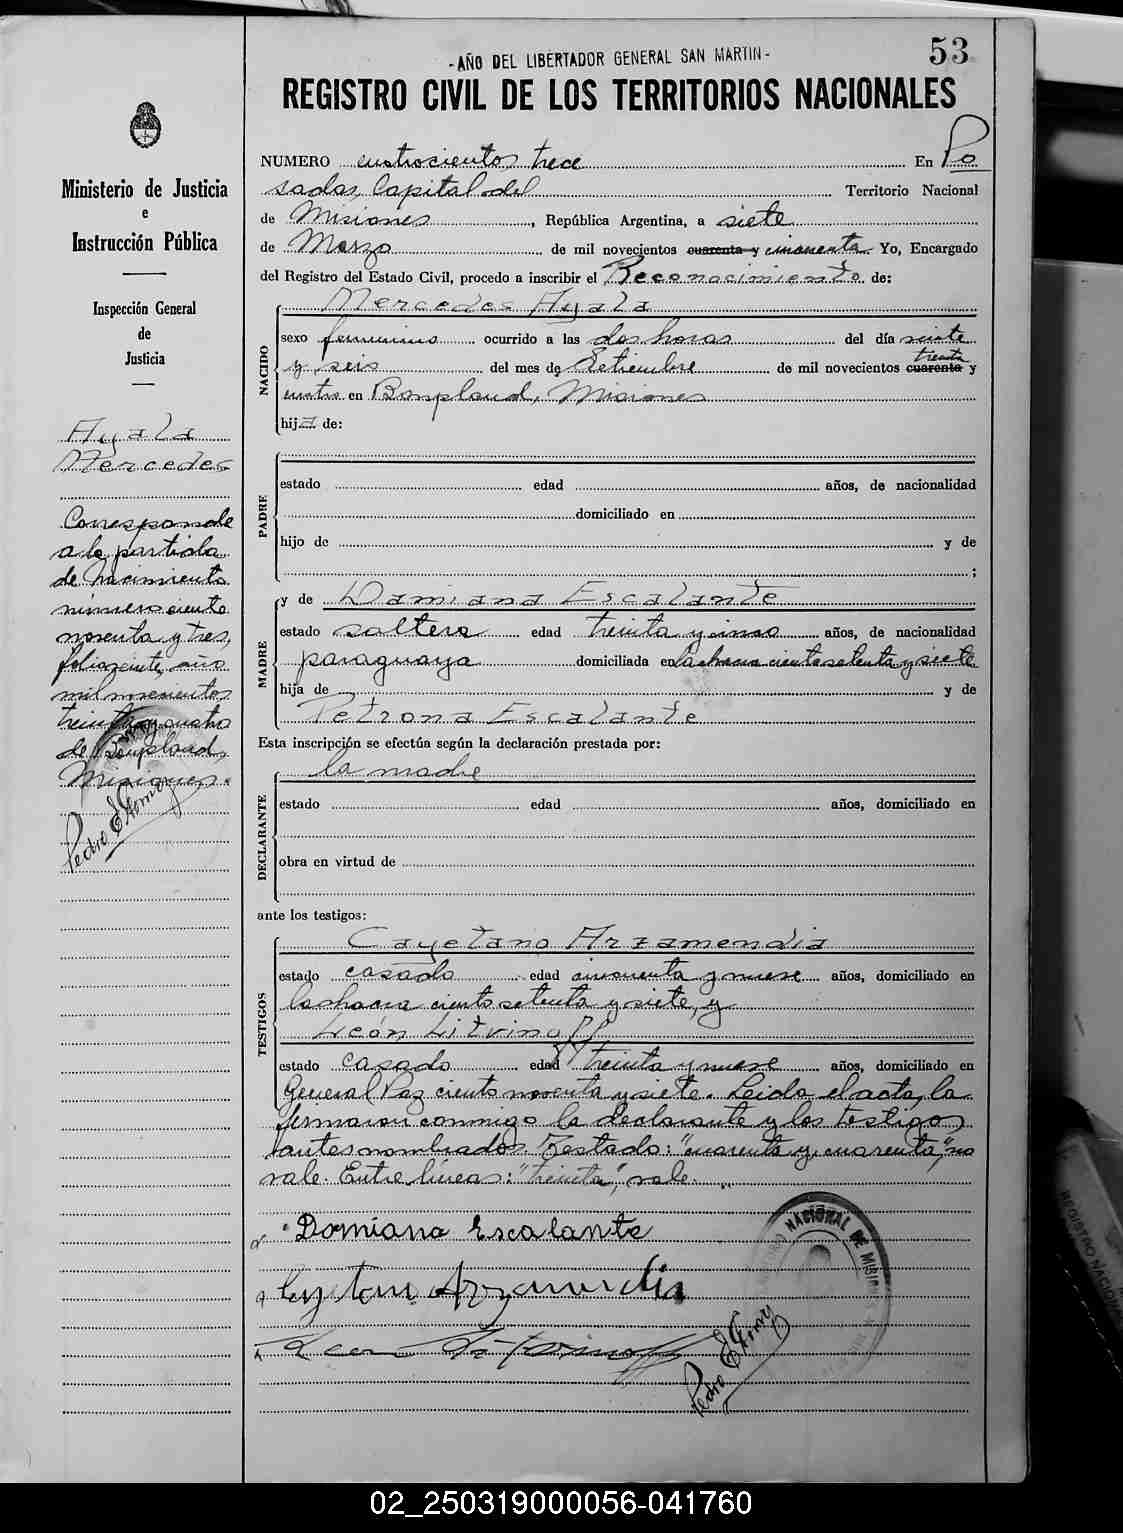 -AÑO DEL LIBERTADOR GENERAL SAN MARTIN-
53
REGISTRO CIVIL DE LOS TERRITORIOS NACIONALES
Ministerio de Justicia
e
Instrucción Pública
Inspección General
de
Justicia
Ayala
Mercedes
Corresponde
a la partida
de Nacimiento
número ciento
noventa y tres,
folio veinte, año
mil novecientos
treinta y cuatro
de Bonpland,
Misiones.
Pedro E Gomez
NUMERO cuatrocientos trece En Po
sadas, Capital del Territorio Nacional
de Misiones, República Argentina, a siete
de Marzo de mil novecientos cuarenta y cincuenta. Yo, Encargado
del Registro del Estado Civil, procedo a inscribir el Reconocimiento de:
NACIDO
Mercedes Ayala
sexo femenino ocurrido a las dos horas del día veinte
y seis del mes de Setiembre de mil novecientos cuarenta y
treinta
cuatro en Bonpland, Misiones
hija de:
PADRE
estado edad años, de nacionalidad
domiciliado en
hijo de y de
;
MADRE
y de Damiana Escalante
estado soltera edad treinta y cinco años, de nacionalidad
paraguaya domiciliada en la chacra ciento setenta y siete
hija de y de
Petrona Escalante
Esta inscripción se efectúa según la declaración prestada por:
DECLARANTE
la madre
estado edad años, domiciliado en
obra en virtud de
ante los testigos:
TESTIGOS
Cayetano Arzamendia
estado casado edad cincuenta y nueve años, domiciliado en
la chacra ciento setenta y siete, y
León Litvinoff
estado casado edad treinta y nueve años, domiciliado en
General Paz ciento noventa y siete. Leida el acta, la
firmaron conmigo la declarante y los testigos
antes nombrados. Testado: "cuarenta y, cuarenta," no
vale. Entre líneas: "treinta", vale.
Domiana Escalante
Cayetano Arzamendia
Leon Litvinoff
NACIONAL DE MISIONES
Pedro E Gomez
REGISTRO NACIONAL
02_250319000056-041760